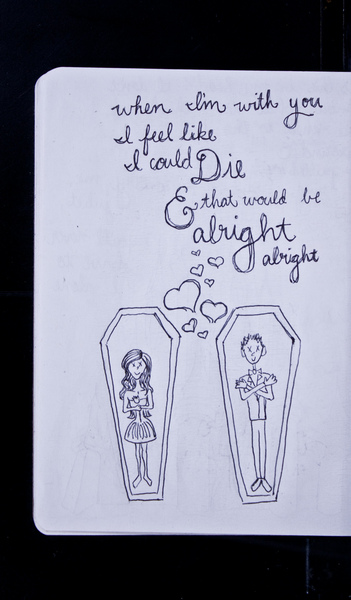 when I'm with you
I feel like
I could Die
& that would be
alright
alright